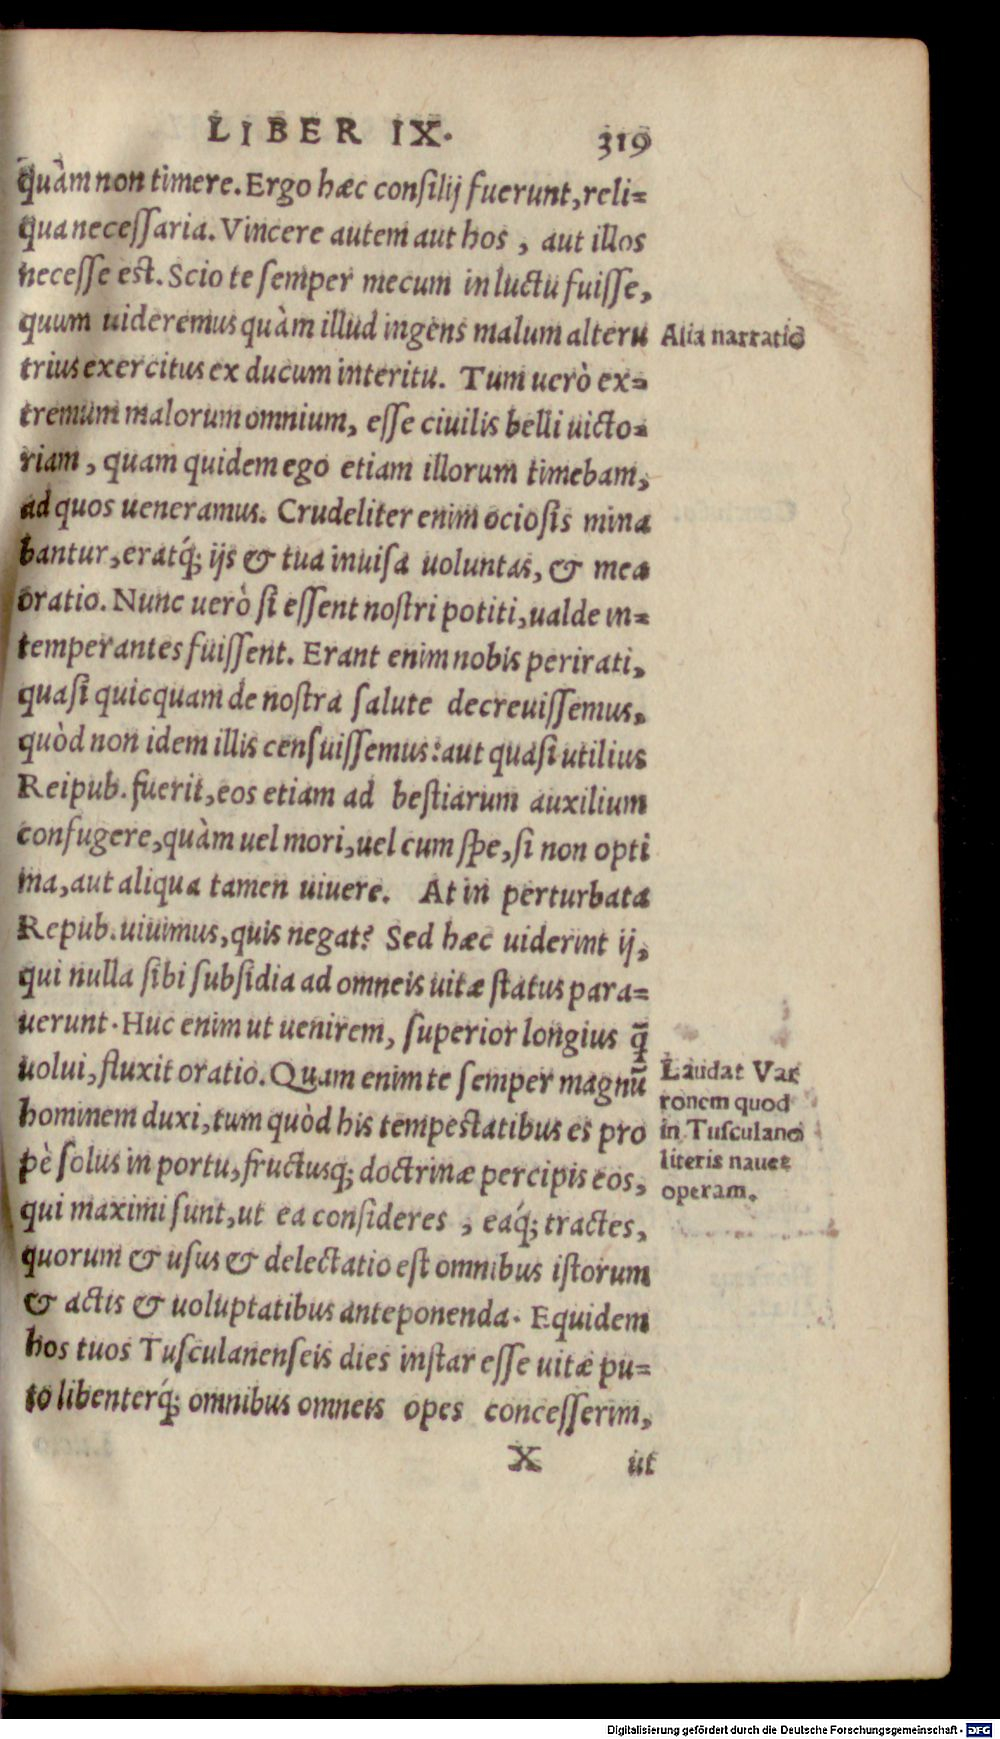 LIBER IX. 319
quàm non timere. Ergo hæc consilij fuerunt, reli=
qua necessaria. Vincere autem aut hos, aut illos
necesse est. Scio te semper mecum in luctu fuisse,
quum uideremus quàm illud ingens malum alteru
trius exercitus ex ducum interitu. Tum uerò ex=
tremum malorum omnium, esse ciuilis belli uicto=
riam, quam quidem ego etiam illorum timebam,
ad quos ueneramus. Crudeliter enim ociosis mina
bantur, eratq́; ijs & tua inuisa uoluntas, & mea
oratio. Nunc uerò si essent nostri potiti, ualde in=
temperantes fuissent. Erant enim nobis perirati,
quasi quicquam de nostra salute decreuissemus,
quòd non idem illis censuissemus: aut quasi utilius
Reipub. fuerit, eos etiam ad bestiarum auxilium
confugere, quàm uel mori, uel cum spe, si non opti
ma, aut aliqua tamen uiuere. At in perturbata
Repub. uiuimus, quis negat? Sed hæc uiderint ij,
qui nulla sibi subsidia ad omneis uitæ status para=
uerunt. Huc enim ut uenirem, superior longius q̃
uolui, fluxit oratio. Quam enim te semper magnũ
hominem duxi, tum quòd his tempestatibus es pro
pè solus in portu, fructusq; doctrinæ percipis eos,
qui maximi sunt, ut ea consideres, eaq́; tractes,
quorum & usus & delectatio est omnibus istorum
& actis & uoluptatibus anteponenda. Equidem
hos tuos Tusculanenseis dies instar esse uitæ pu=
to libenterq́; omnibus omneis opes concesserim,
X ut
Alia narratio
Laudat Var
ronem quod
in Tusculano
literis nauet
operam.
Digitalisierung gefördert durch die Deutsche Forschungsgemeinschaft - DFG